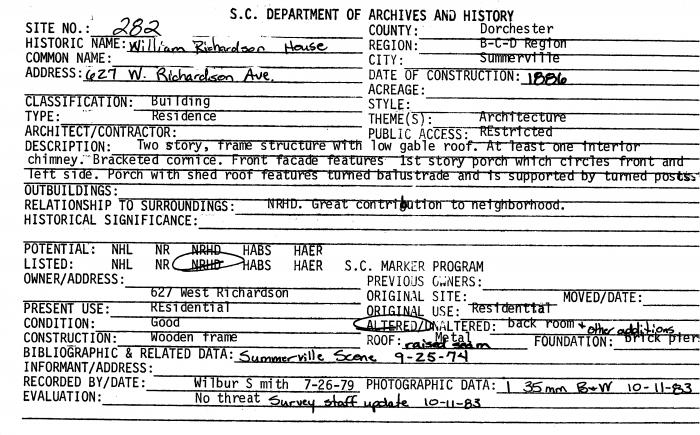 S.C. DEPARTMENT OF ARCHIVES AND HISTORY
SITE NO.: 282 COUNTY: Dorchester
HISTORIC NAME: William Richardson House REGION: B-C-D Region
COMMON NAME: CITY: Summerville
ADDRESS: 627 W. Richardson Ave. DATE OF CONSTRUCTION: 1886
ACREAGE:
CLASSIFICATION: Building STYLE:
TYPE: Residence THEME(S): Architecture
ARCHITECT/CONTRACTOR: PUBLIC ACCESS: REstricted
DESCRIPTION: Two story, frame structure with low gable roof. At least one interior
chimney. Bracketed cornice. Front facade features 1st story porch which circles front and
left side. Porch with shed roof features turned balustrade and is supported by turned posts.
OUTBUILDINGS:
RELATIONSHIP TO SURROUNDINGS: NRHD. Great contribution to neighborhood.
HISTORICAL SIGNIFICANCE:
POTENTIAL: NHL NR NRHD HABS HAER
LISTED: NHL NR NRHD HABS HAER S.C. MARKER PROGRAM
OWNER/ADDRESS: PREVIOUS OWNERS:
627 West Richardson ORIGINAL SITE: MOVED/DATE:
PRESENT USE: REsidential ORIGINAL USE: Residential
CONDITION: Good ALTERED/UNALTERED: back room + other additions
CONSTRUCTION: Wooden frame ROOF: Metal raised seam FOUNDATION: brick pier
BIBLIOGRAPHIC & RELATED DATA: Summerville Scene 9-25-74
INFORMANT/ADDRESS:
RECORDED BY/DATE: Wilbur S mith 7-26-79 PHOTOGRAPHIC DATA: 1 35mm B+W 10-11-83
EVALUATION: No threat Survey staff update 10-11-83